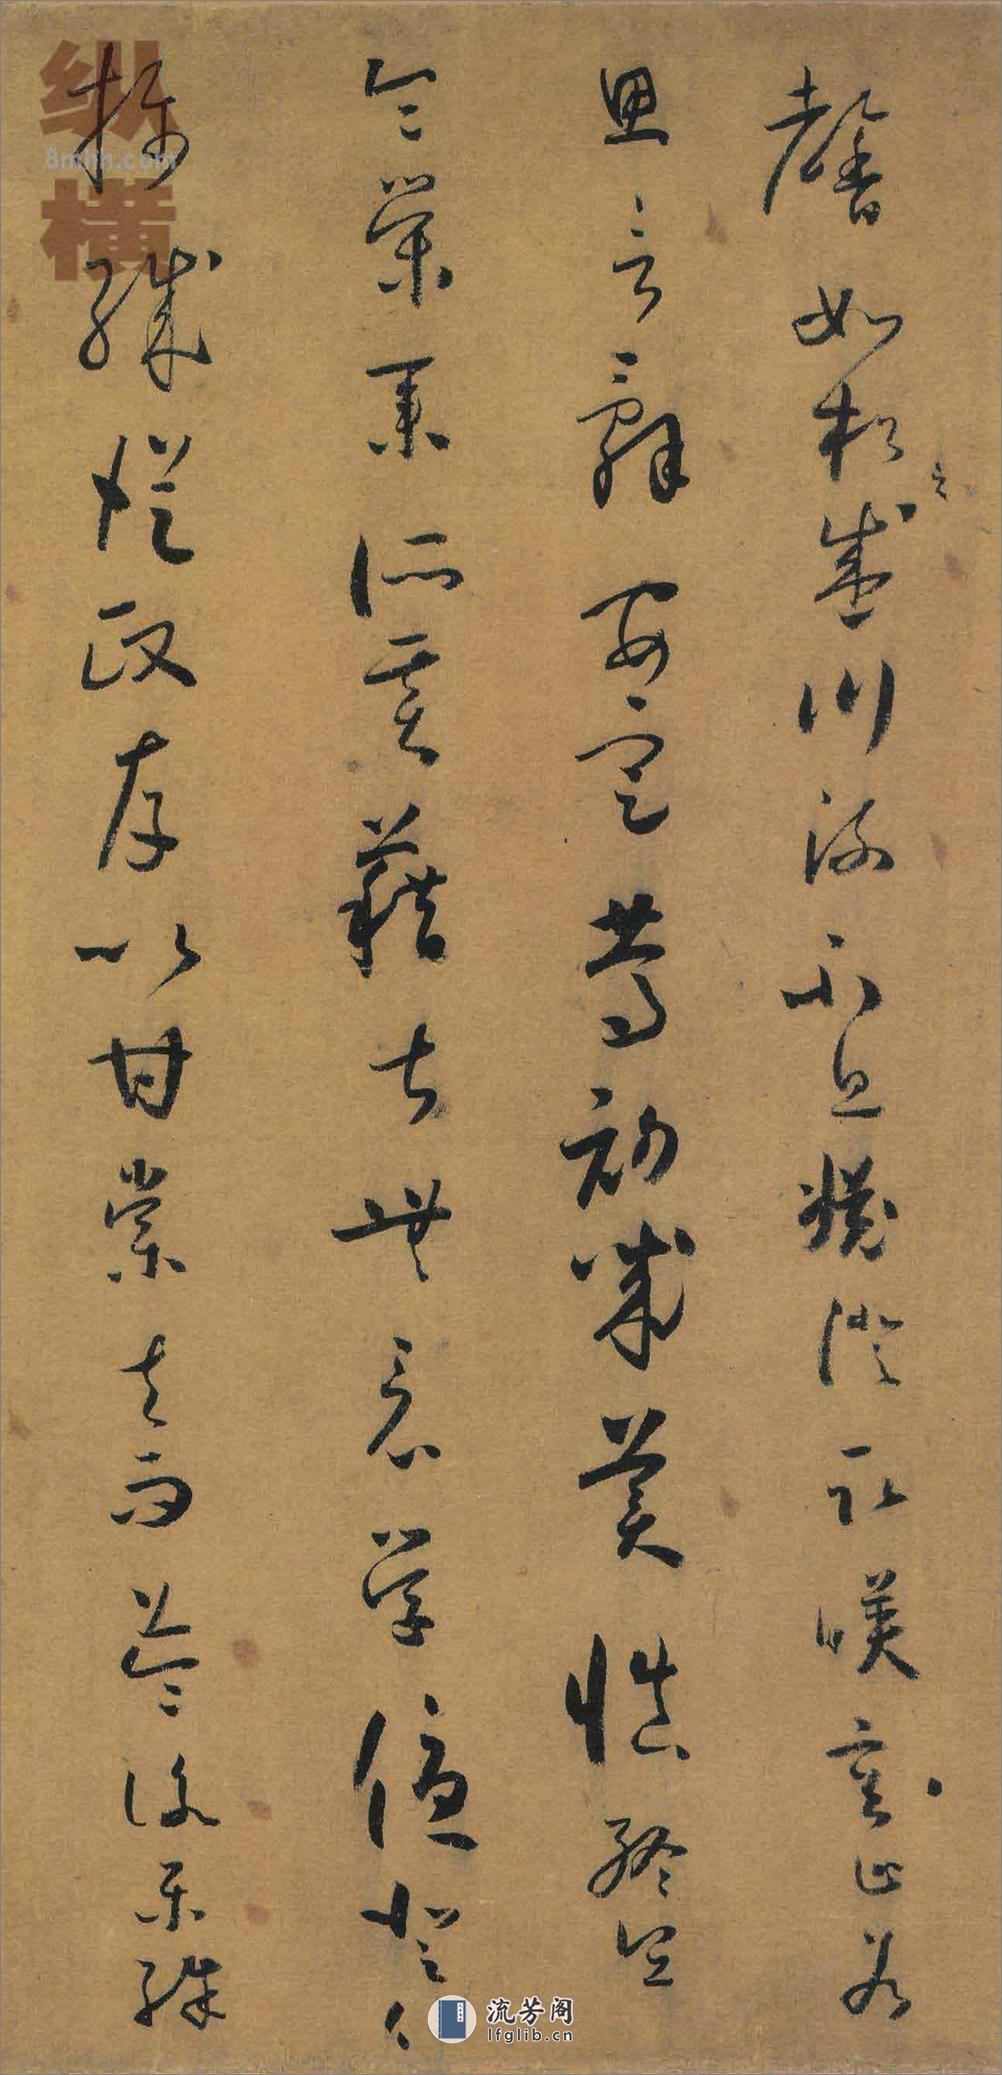 馨如松之盛川流不息淵澄取暎容止若
思言辭安定篤初誠美慎終宜
令榮業所基藉甚無竟學優登仕
攝職從政存以甘棠去而益詠樂殊
纵横
8mhh.com
流芳阁
lfglib.cn